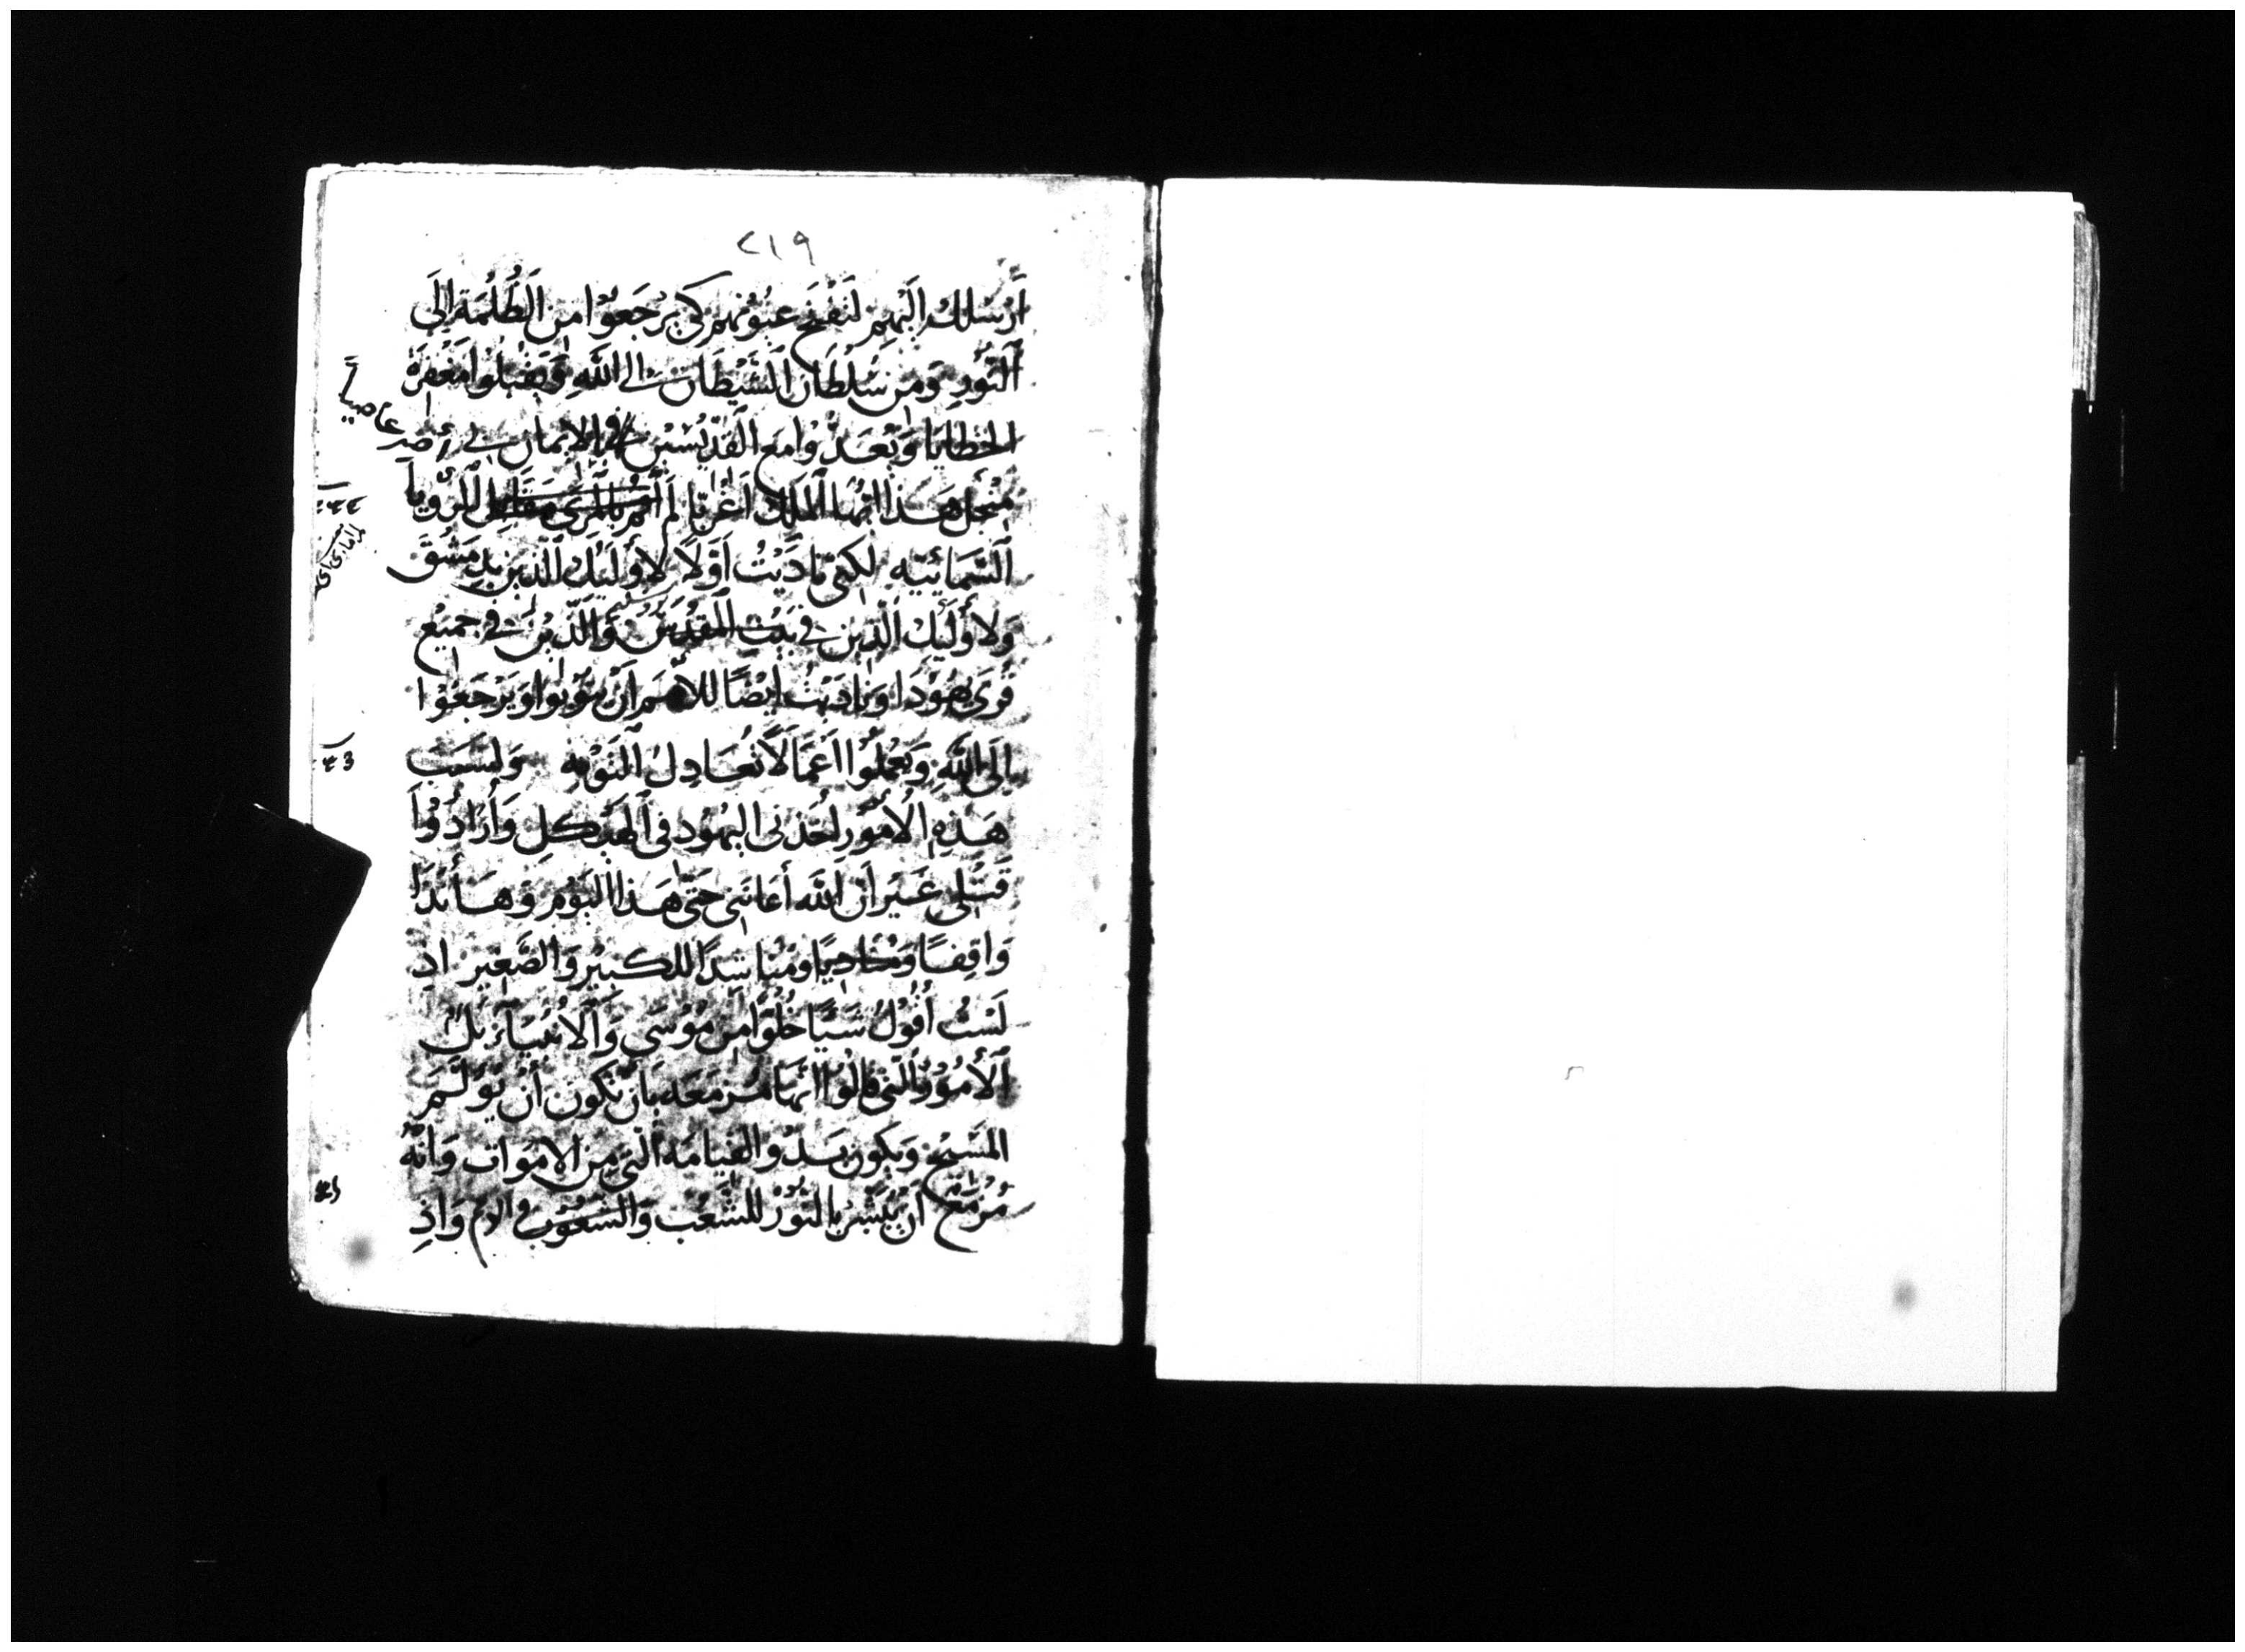 ٢١٩
أَرْسلك إليهم لتفتح عيونهم كي يرجعوا من الظلمة إلى
النور ومن سلطان الشيطان الى الله ويقبلوا مغفرة
الخطايا ويعدوا مع القديسين في الايمان بي
منجل هذا ايها الملك اغربا لم أصر عاصياً للرؤيا
السمائيه لكني ناديت اولا لأوليك الذين بدمشق
ولأوليك الذين في بيت المقدس والذين في جميع
قرى يهودا وناديت ايضًا للامم ان يتوبوا ويرجعوا
إلى الله ويعملوا اعمالًا تعادل التوبه ولسبب
هذه الأمور اخذني اليهود في الهيكل وأرادوا
قتلي غير ان الله أعانني حتى هذا اليوم وهأنذا
واقفًا ومناديًا ومناشدًا للكبير والصغير اذ
لست أقول شيًا خلوًا من موسى والانبياء بل
الأمور التي قالوا انها مزمعه بان تكون أن يؤلم
المسيح ويكون بدو القيامة التي من الاموات وانه
مزمع ان يبشر بالنور للشعب والشعوب والامم واذ